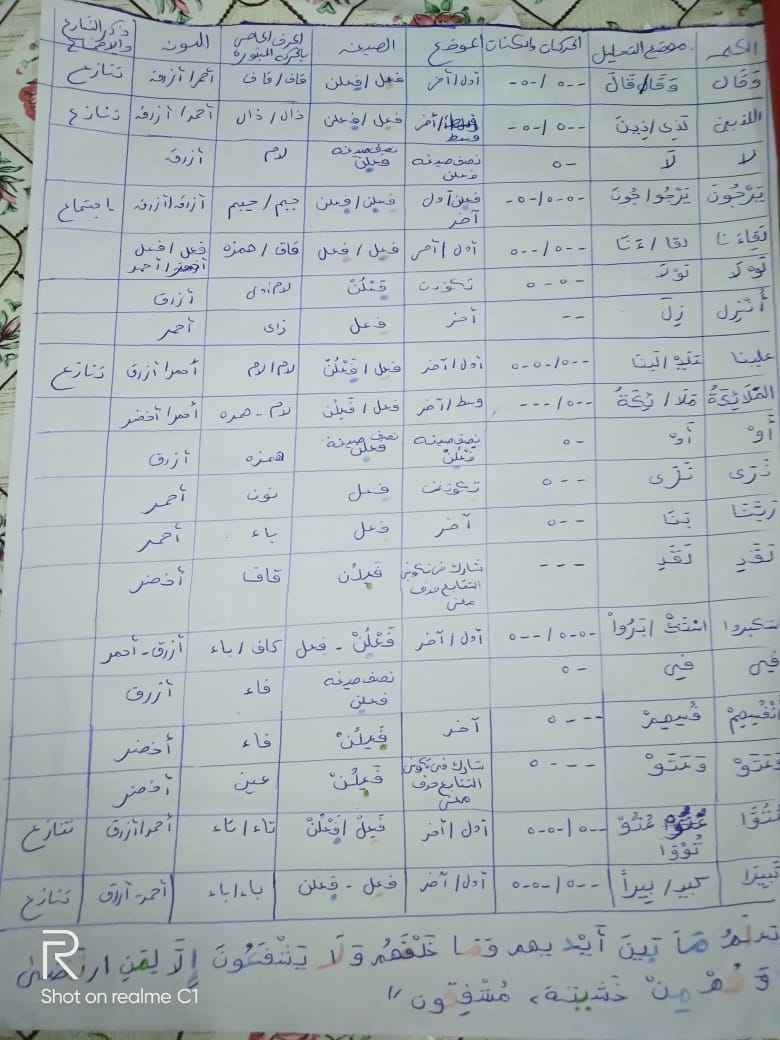 الكلمه موضع التحليل الحركات والسكنات الموضع الصيغه الحرف الخاص بالحركه المبتوره اللون ذكر التنازع والاجتماع
وَقَالَ وَقَا/قَالَ --٥/-٥- أول/آخر فعل/فعلن قاف/قاف أحمر/أزرق تنازع
اللذين لذى/ذين --٥/-٥- وسط/آخر فعل/فعلن ذال/ذال أحمر/أزرق تنازع
لا لَا -٥ نصف صيغه فعلن نصف صيغه فعلن لام أزرق
يَرْجُونَ يَرْجُوا/جُونَ -٥-٥/-٥- فعلن/أول آخر فعلن/فعلن جيم/جيم أزرق/أزرق اجتماع
لقاءنا لقا/ءَنَا --٥/--٥ أول/آخر فعل/فعل قاف/همزه فعل/فعل أحمر
لولا لَولَا -٥-٥ تكونت فَعْلُنْ لام أولى أزرق
أُنْزِلَ زِلَ -- آخر فعل زاى أحمر
علينا عَلَيْ/لَينَا --٥/-٥-٥ أول/آخر فعل/فَعْلُنْ لام/لام أحمر/أزرق تنازع
المَلَائِكَةُ مَلَا/ئِكَةُ --٥/--- وسط/آخر فعل/فَعِلُن لام-همزه أحمر/أخضر
أَوْ أَوْ -٥ نصف صيغه فَعْلُنْ نصف صيغه فعلن همزه أزرق
نَرَى نَرَى --٥ تكونت فعل نون أحمر
رَبَّنَا بَنَا --٥ آخر فعل باء أحمر
لَقَدِ لَقَدِ --- شارك فى تكوين التتابع حرف معنى فَعِلُن قاف أخضر
ستكبروا اسْتَكْ/بَرُوا -٥-٥/--٥ أول/آخر فَعْلُنْ - فعل كاف/باء أزرق-أحمر
فِي فِي -٥ نصف صيغه فعلن فاء أزرق
أنْفُسِهِمْ فُسِهِمْ ---٥ آخر فَعِلُنْ فاء أخضر
وَعَتَوْ وَعَتَوْ ---٥ شارك فى تكوين التتابع حرف معنى فَعِلُنْ عين أخضر
عُتُوًّا عُتُوْ تُوْوًا --٥/-٥-٥ أول/آخر فَعِلْ/فَعْلُنْ تاء/تاء أحمر/أزرق تنازع
كَبِيرًا كبير/بيراً --٥/-٥-٥ أول/آخر فعل - فعلن باء/باء أحمر-أزرق تنازع
يعلمُ مَا بَينَ أَيْديهم وَمَا خَلْفَهُم وَلَا يَشْفَعُونَ إِلَّا لِمَنِ ارتضى
وَهُمْ مِنْ خَشْيَتِهِ، مُشْفِقُون "
Shot on realme C1